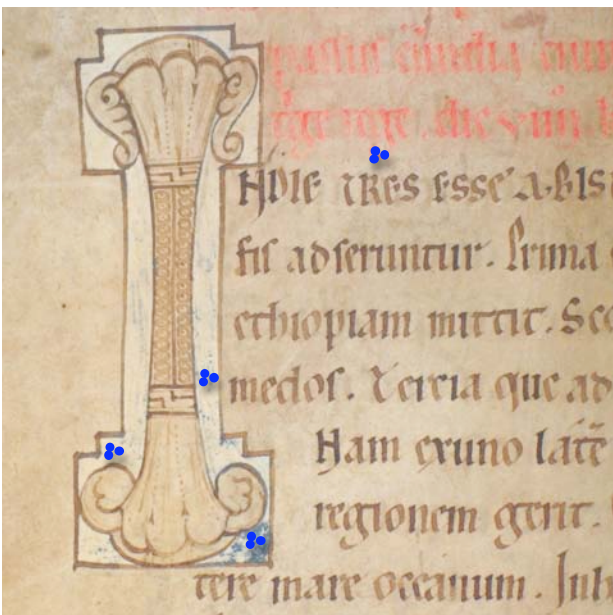 rege. die
INDIE TRES ESSE AB IS
fis adseruntur. Prima
ethiopiam mittit. Sec
medos. Tercia que ad
Nam exuno latē
regionem gerit.
tere mare occeanum. Inh